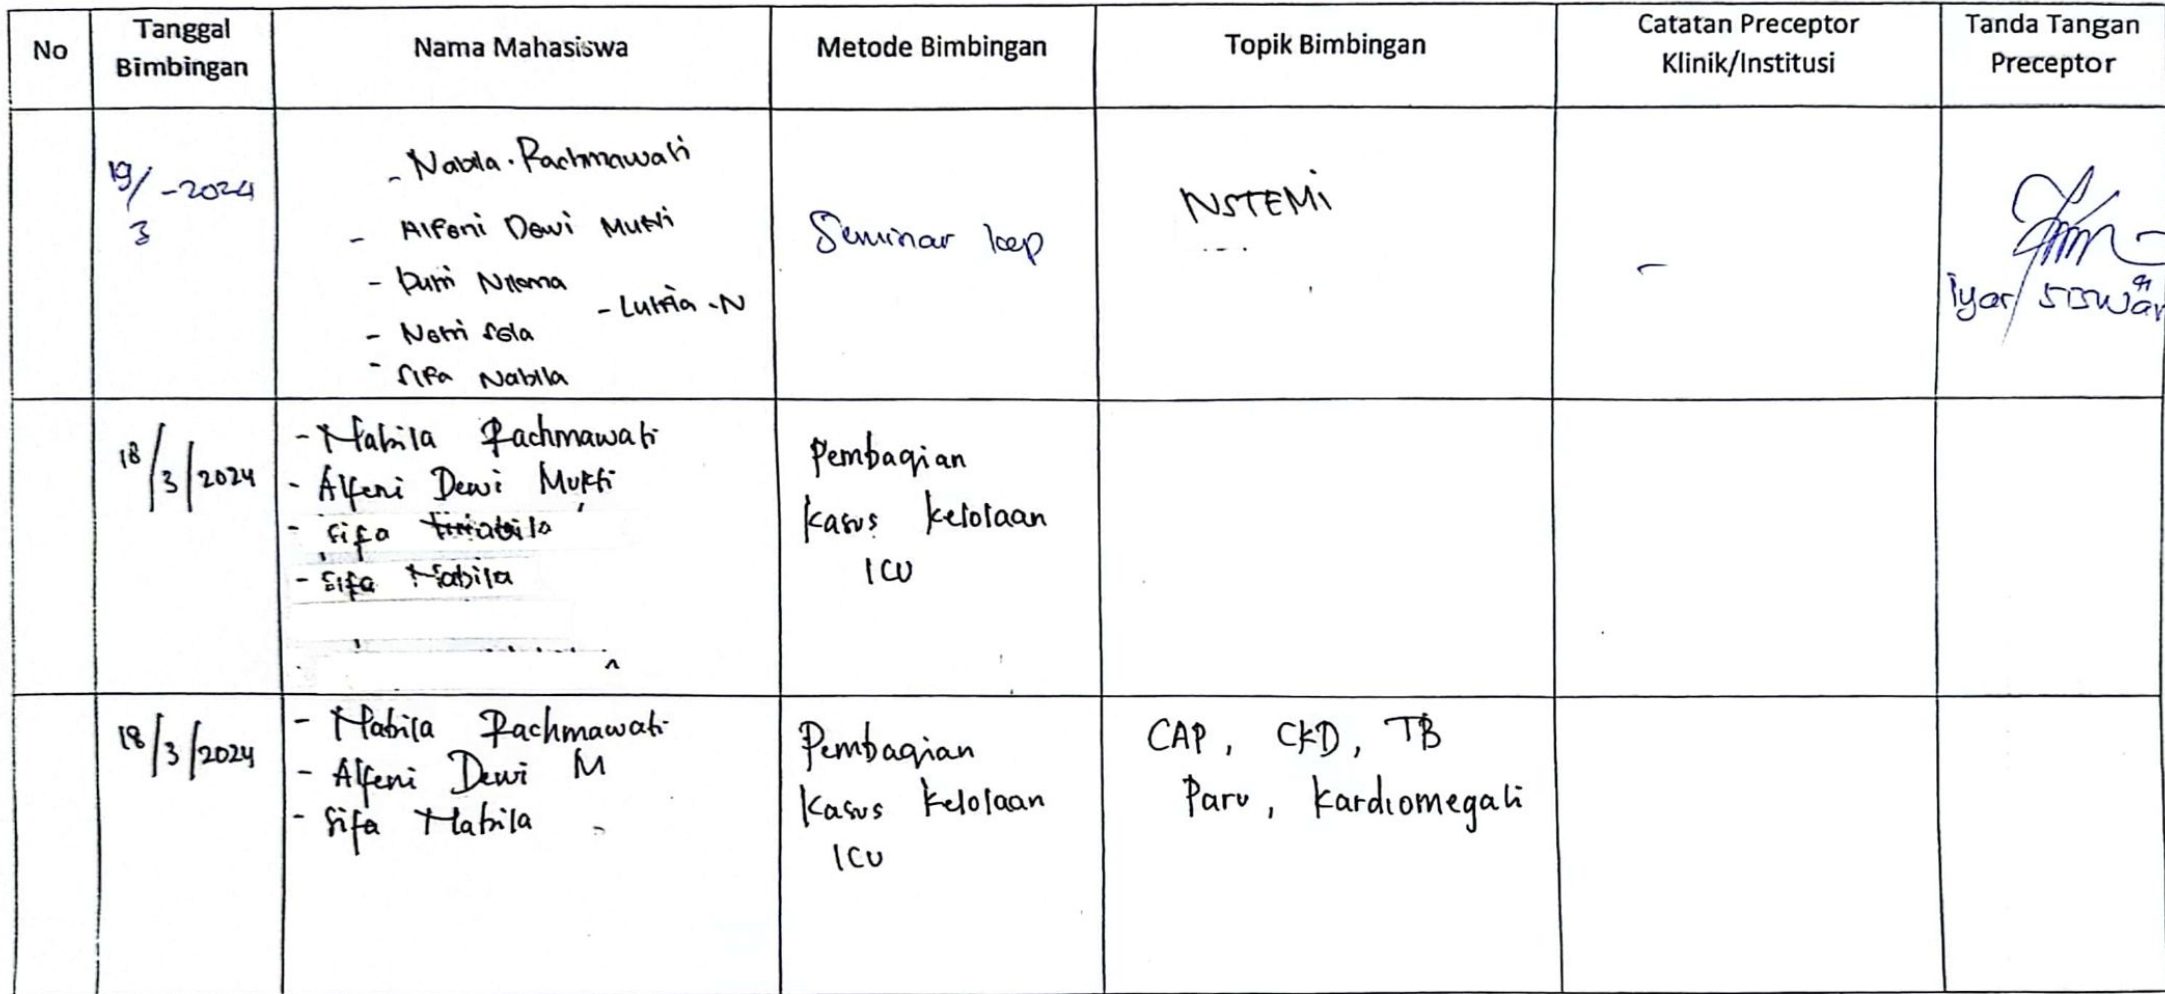 No
Tanggal
Bimbingan
Nama Mahasiswa
Metode Bimbingan
Topik Bimbingan
Catatan Preceptor
Klinik/Institusi
Tanda Tangan
Preceptor
19/3 -2024
- Nabila Rachmawati
- Alfeni Dewi Mukti
- Putri
- Lutfia -N
- Nomi Sola
- Sifa Nabila
Seminar kep
NSTEMI
-
18/3/2024
- Nabila Rachmawati
- Alfeni Dewi Mukti
- Sifa
- Sifa Nabila
Pembagian
Kasus kelolaan
ICU
18/3/2024
- Nabila Rachmawati
- Alfeni Dewi M
- Sifa Nabila
Pembagian
Kasus kelolaan
ICU
CAP, CKD, TB
Paru, Kardiomegali